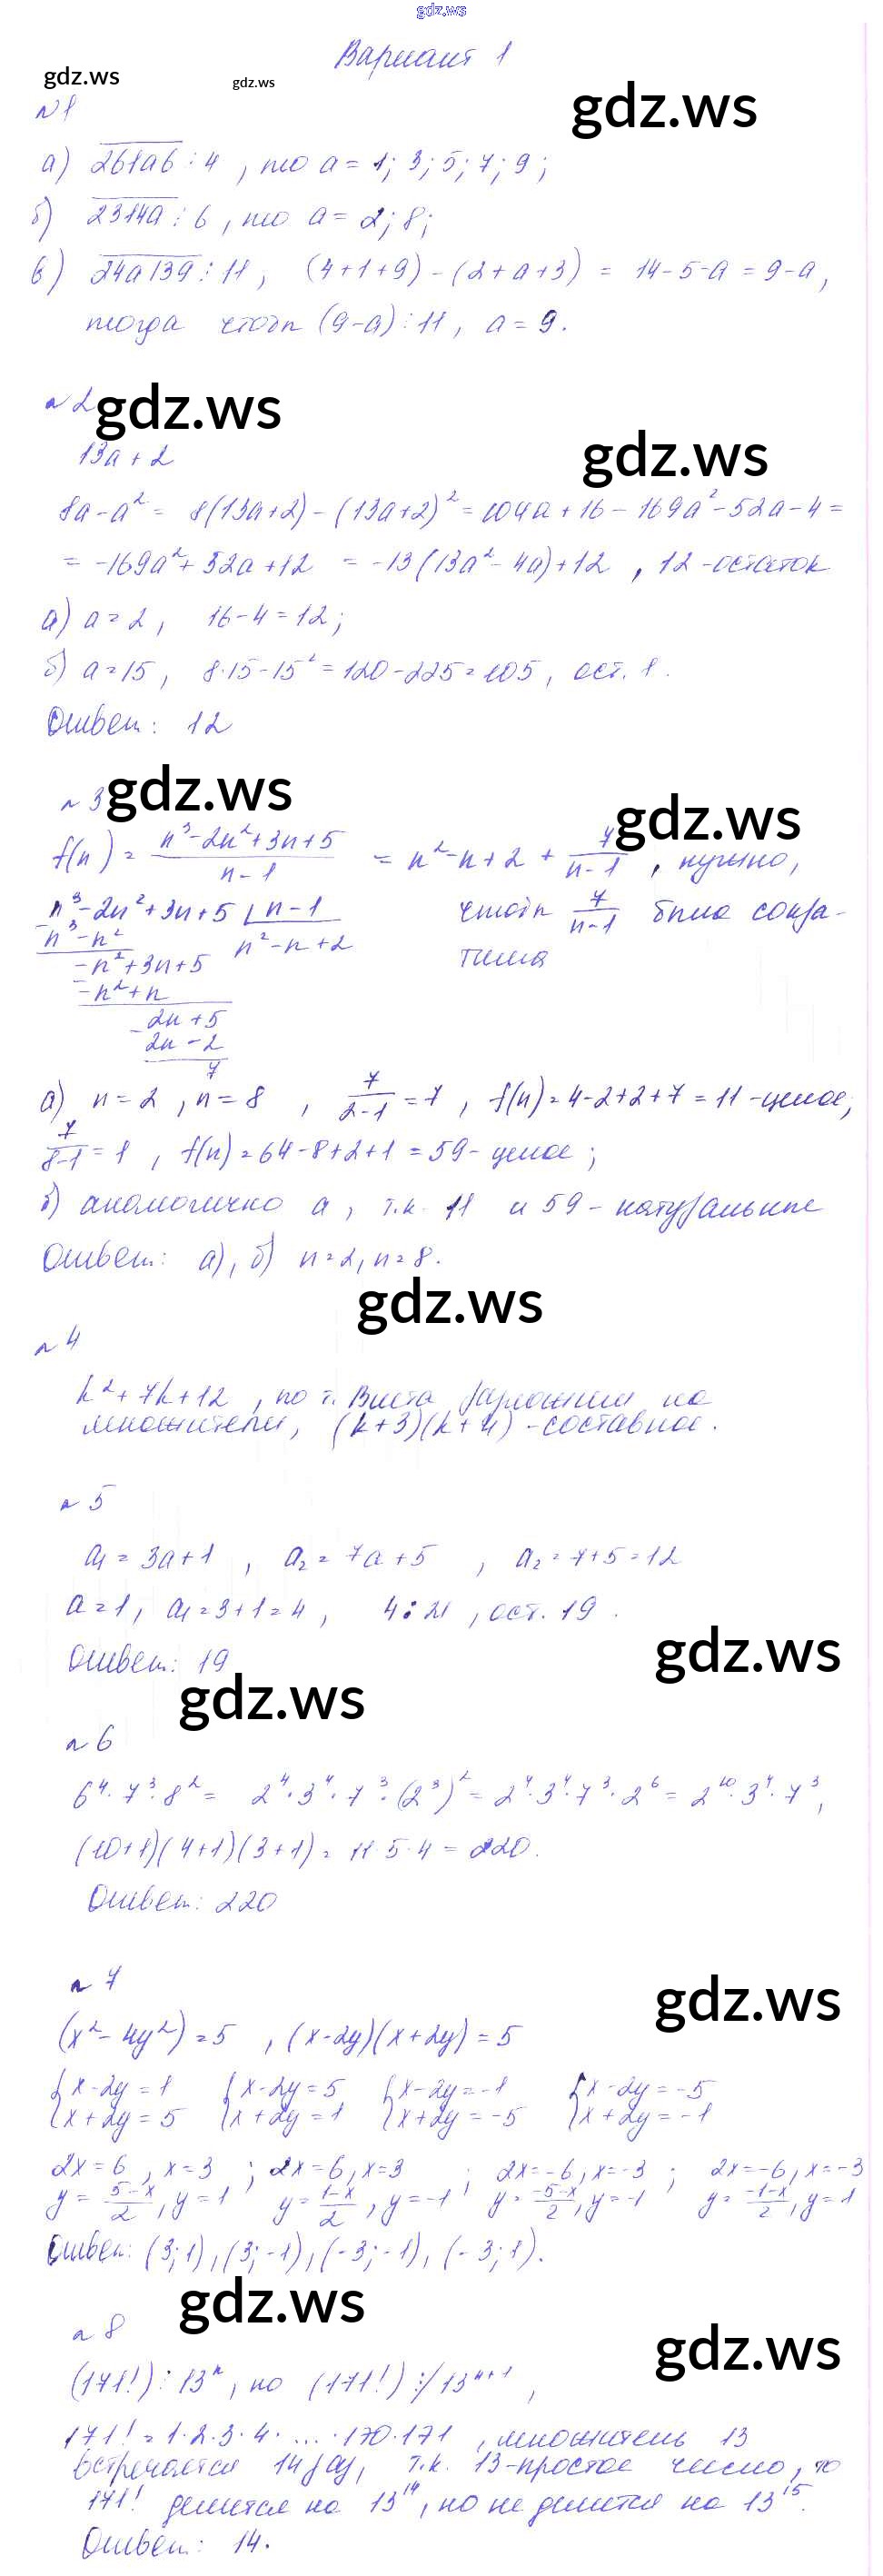 gdz.ws
Вариант 1
gdz.ws gdz.ws gdz.ws
№1
а) 261ab ⋮ 4 , то a = 1; 3; 5; 7; 9;
б) 2314a ⋮ 6 , то a = 2; 8;
в) 24a139 ⋮ 11 , (4+1+9) - (2+a+3) = 14-5-a = 9-a ,
тогда чтобы (9-a) ⋮ 11 , a = 9.
№2 gdz.ws
gdz.ws
13a + 2
8a - a² = 8(13a+2) - (13a+2)² = 104a + 16 - 169a² - 52a - 4 =
= -169a² + 52a + 12 = -13(13a² - 4a) + 12 , 12 - остаток
а) a = 2 , 16 - 4 = 12 ;
б) a = 15 , 8·15 - 15² = 120 - 225 = 105 , ост. 1.
Ответ: 12
№3 gdz.ws
gdz.ws
f(n) = (n³ - 2n² + 3n + 5)/(n - 1) = n² - n + 2 + 7/(n - 1) , нужно,
n³ - 2n² + 3n + 5 | n - 1 чтобы 7/(n-1) была сокра-
n³ - n² n² - n + 2
-n² + 3n + 5 тима
-n² + n
2n + 5
2n - 2
7
а) n = 2 , n = 8 , 7/(2-1) = 7 , f(n) = 4 - 2 + 2 + 7 = 11 - целое;
7/(8-1) = 1 , f(n) = 64 - 8 + 2 + 1 = 59 - целое ;
б) аналогично а , т.к. 11 и 59 - натуральные
Ответ: а), б) n = 2, n = 8.
gdz.ws
№4
k² + 7k + 12 , по т. Виета разложим на
множители, (k+3)(k+4) - составное.
№5
a₁ = 3a + 1 , a₂ = 7a + 5 , a₂ = 7 + 5 = 12
a = 1 , a₁ = 3 + 1 = 4 , 4 : 21 , ост. 19 .
gdz.ws
Ответ: 19
gdz.ws
№6
6⁴ · 7³ · 8² = 2⁴ · 3⁴ · 7³ · (2³)² = 2⁴ · 3⁴ · 7³ · 2⁶ = 2¹⁰ · 3⁴ · 7³ ,
(10+1)(4+1)(3+1) = 11·5·4 = 220.
Ответ: 220
№7
gdz.ws
(x² - 4y²) = 5 , (x-2y)(x+2y) = 5
{x-2y = 1 {x-2y = 5 {x-2y = -1 {x-2y = -5
{x+2y = 5 {x+2y = 1 {x+2y = -5 {x+2y = -1
2x = 6 , x = 3 ; 2x = 6, x = 3 ; 2x = -6, x = -3 ; 2x = -6, x = -3
y = (5-x)/2 , y = 1 y = (1-x)/2 , y = -1 y = (-5-x)/2 , y = -1 y = (-1-x)/2 , y = 1
Ответ: (3; 1), (3; -1), (-3; -1), (-3; 1).
gdz.ws
№8
gdz.ws
(171!) ⋮ 13ⁿ , но (171!) ⋮̸ 13ⁿ⁺¹ ,
171! = 1·2·3·4· ... ·170·171 , множитель 13
встречается 14 раз, т.к. 13 - простое число, то
171! делится на 13¹⁴, но не делится на 13¹⁵.
Ответ: 14.